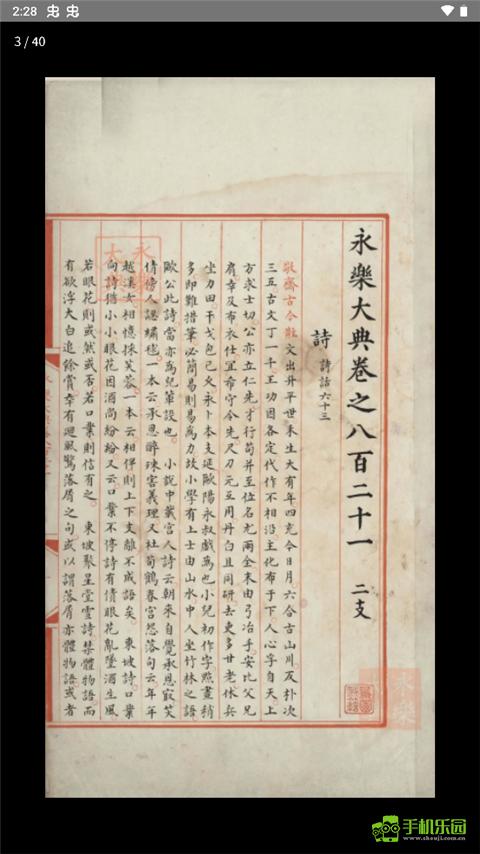 2:28
3 / 40
永樂大典卷之八百二十一 二支
詩 詩話六十三
敬齋古今黈 文出升平世禾生大有年四充今日月六合古山川反朴次
三五古文丁一千王功因各定代作不相沿主化布于下人心字自天上
方求士切公亦立仁先才行苟并至位名尤兩全末由弓冶手安比父兄
肩幸及布衣仕宜希守令先尺刀元互用丹白且同研去更多廿老休兵
坐力田干戈包己久永卜本支延歐陽永叔戲為也小兒初作字㸃畫稍
多即難措筆必簡易則易為力故小學有上士由山水中人坐竹林之語
歐公此詩當亦為兒輩設也 小說中載宮人詩云朝來自覺承恩寂笑
倩傍人認繡毬一本云承恩醉珠宮義理又杜荀鶴春宮怨落句云年年
越溪女相憶採芙蓉一本云相伴則上下支離不成語矣 東坡詩口業
向詩猶小小眼花因酒尚紛紛又云口業不停詩有債眼花亂墜酒生風
若眼花則或然或否若口業則信有之 東坡聚星堂雪詩禁體物語而
有欲浮大白追餘賞幸有迴風驚落屑之句或以謂落屑亦體物語或者
永樂大
手机乐园
www.shouji.com.cn